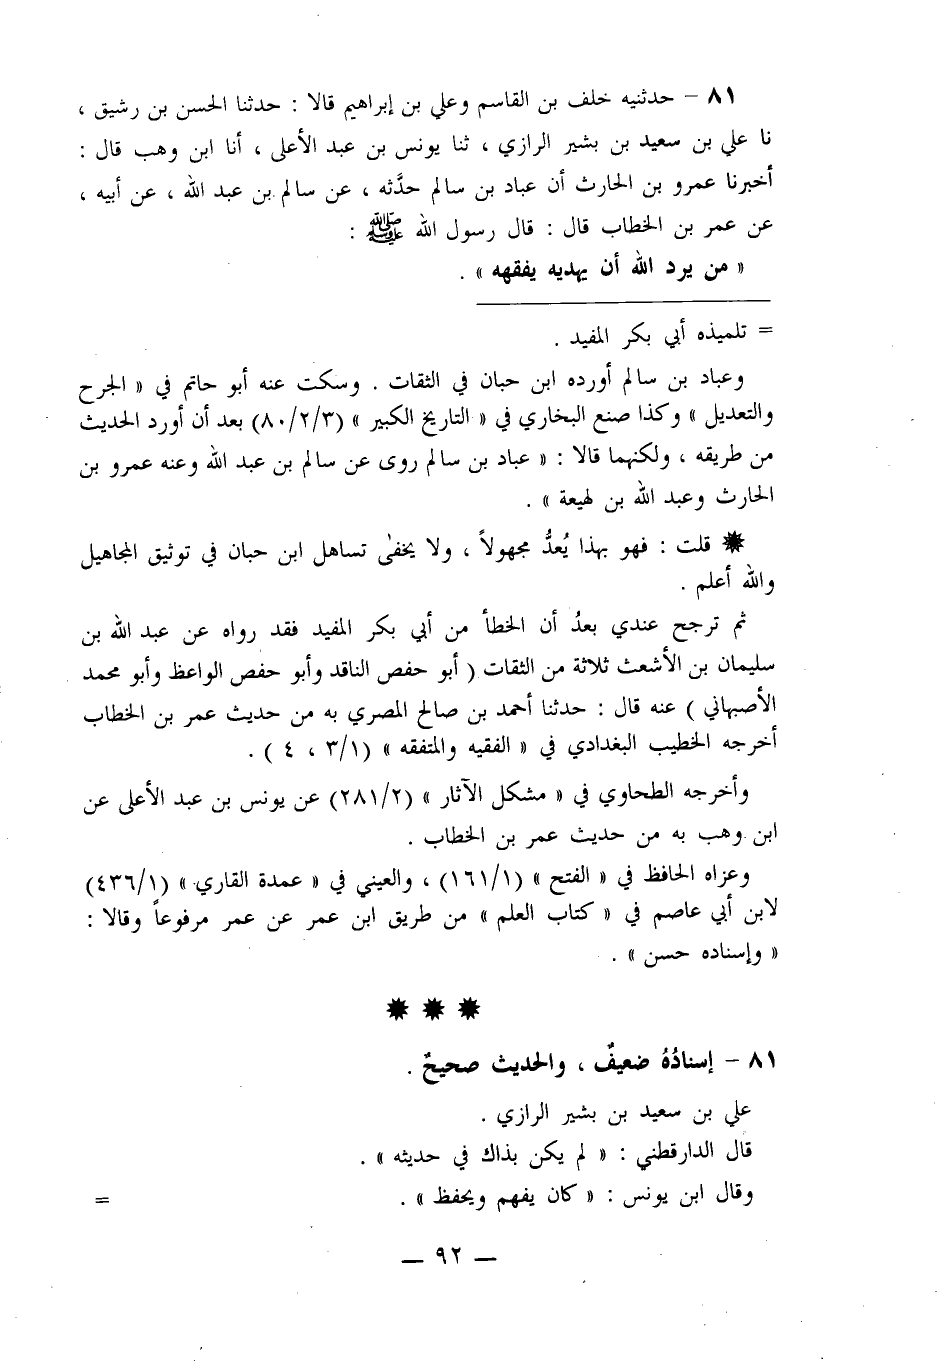 ٨١ - حدثنيه خلف بن القاسم وعلي بن إبراهيم قالا : حدثنا الحسن بن رشيق ،
نا علي بن سعيد بن بشير الرازي ، ثنا يونس بن عبد الأعلى ، أنا ابن وهب قال :
أخبرنا عمرو بن الحارث أن عباد بن سالم حدَّثه ، عن سالم بن عبد الله ، عن أبيه ،
عن عمر بن الخطاب قال : قال رسول الله ﷺ :
« من يرد الله أن يهديه يفقهه » .
= تلميذه أبي بكر المفيد .
وعباد بن سالم أورده ابن حبان في الثقات . وسكت عنه أبو حاتم في « الجرح
والتعديل » وكذا صنع البخاري في « التاريخ الكبير » (٨٠/٢/٣) بعد أن أورد الحديث
من طريقه ، ولكنهما قالا : « عباد بن سالم روى عن سالم بن عبد الله وعنه عمرو بن
الحارث وعبد الله بن لهيعة » .
✸ قلت : فهو بهذا يُعدُّ مجهولاً ، ولا يخفىٰ تساهل ابن حبان في توثيق المجاهيل
والله أعلم .
ثم ترجح عندي بعدُ أن الخطأ من أبي بكر المفيد فقد رواه عن عبد الله بن
سليمان بن الأشعث ثلاثة من الثقات ( أبو حفص الناقد وأبو حفص الواعظ وأبو محمد
الأصبهاني ) عنه قال : حدثنا أحمد بن صالح المصري به من حديث عمر بن الخطاب
أخرجه الخطيب البغدادي في « الفقيه والمتفقه » (٣/١ ، ٤ ) .
وأخرجه الطحاوي في « مشكل الآثار » (٢٨١/٢) عن يونس بن عبد الأعلى عن
ابن وهب به من حديث عمر بن الخطاب .
وعزاه الحافظ في « الفتح » (١٦١/١) ، والعيني في « عمدة القاري » (٤٣٦/١)
لابن أبي عاصم في « كتاب العلم » من طريق ابن عمر عن عمر مرفوعاً وقالا :
« وإسناده حسن » .
✸ ✸ ✸
٨١ - إسنادُهُ ضعيفٌ ، والحديث صحيحٌ .
علي بن سعيد بن بشير الرازي .
قال الدارقطني : « لم يكن بذاك في حديثه » .
وقال ابن يونس : « كان يفهم ويحفظ » . =
— ٩٢ —